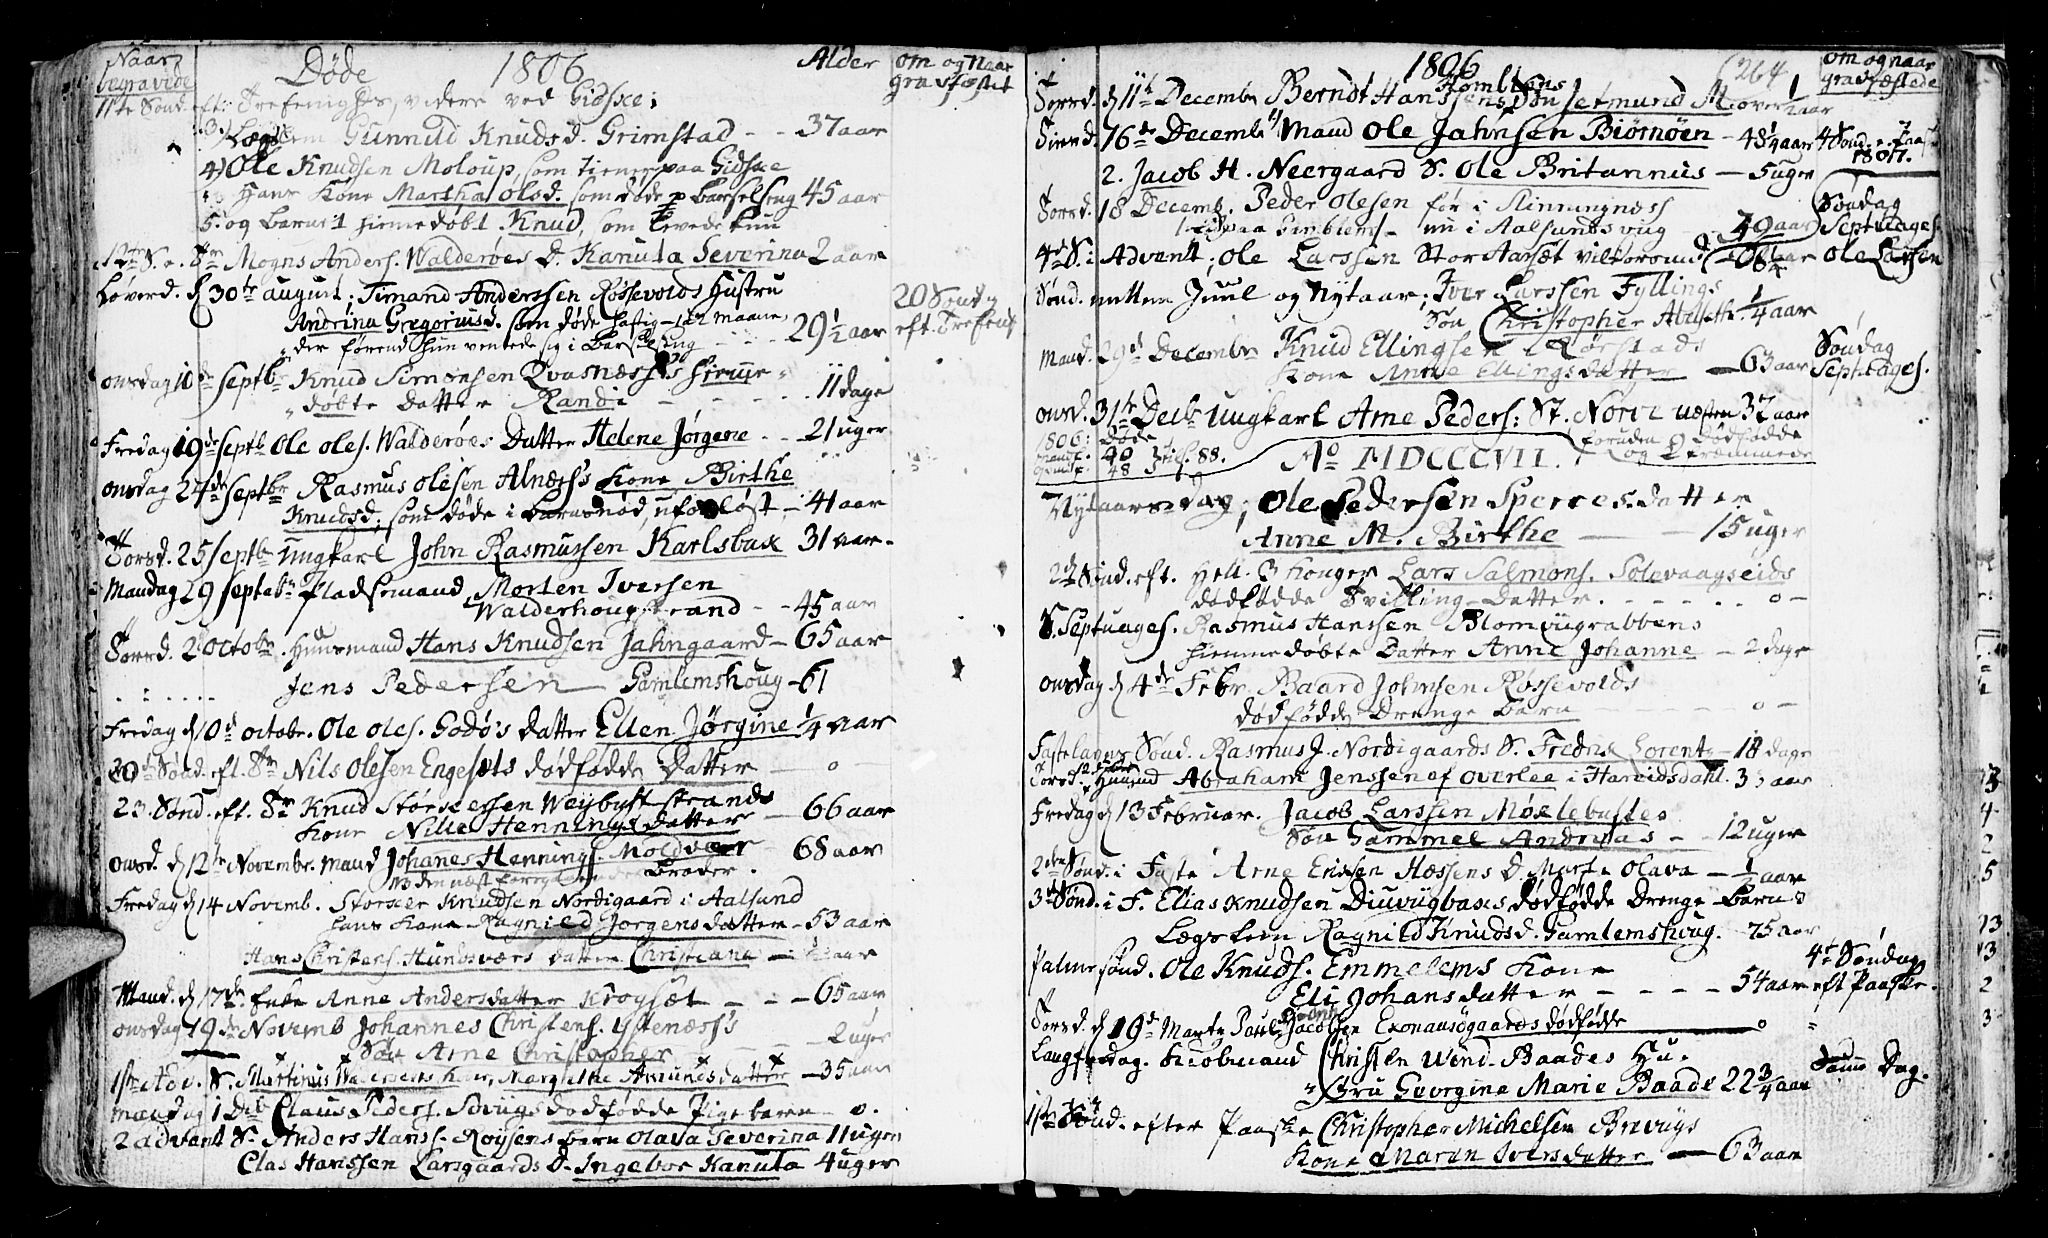 Naar begravede
Døde 1806 Alder om og Naar gravfæstet
11te Sønd. eft. Trefenighes, videre ved Gidske;
3) Lægslem Gunnild Knudsd. Grimstad - - 37 aar
4) Ole Knudsen Moloup, som tiener paa Gidske
Hans Kone Martha Olsd. som døde p Barselseng 45 aar
5. og barnet hiemedøbt Knud, som levede kun
12te S. e. Tr. Mogns Anders. Walderøes D. Kanuta Severina 2 aar
Løverd. d 30te august; Timand Anderssen Røssevolds Hustru
Andrina Gregoriusd. som døde hastig
der førend hun ventede sig i Barselseng - - 29 1/2 aar
20 Søndg eft. Trefenigh
onsdag 10de Septbr Knud Simonsen Qvasnæss's hieme-
døbte datter Randi - - - - 11 dage
Fredag 19de Septb Ole Oles. Walderøes Datter Helene Jørgene - - 21 uger
onsdag 24de Septbr Rasmus Olesen Alnæss's Kone Birthe
Knudsd. som døde i barnsnød, uforløst, - 41 aar
Torsd. 25 Septb Ungkarl John Rasmussen Karlsbak 31 aar.
Mandag 29 Septebr Pladsemand Morten Iversen
Walderhougstrand - - 45 aar
Torsd. 2 Octobr. Huusmand Hans Knudsen Jahngaard - 65 aar
Jens Pedersen Gamlemshoug - 61
Fredag d 10d octobr. Ole Oles. Godø's datter Ellen Jørgine 1/4 aar
20de Sønd. eft. Tr Nils Olesen Engesets dødfødde Datter - 0 -
23. Sønd. eft. Tr Knud Størkersen Weybust strands
Kone Nille Hennings datter - 66 aar
onsd. d 12te Novembr. Mand Johanes Hennings. Moldvær - 68 aar
NB den næst foregaaendes Broder.
Fredag d 14 Novemb. Størker Knudsen Nordigaard i Aalsund
hans Kone Ragnild Jørgens datter - 53 aar
Hans Christens. Hundsværs datter Christiana - aar
Mand. d 17de Enke Anne Andersdatter Kroysæt - - - 65 aar
onsdag 19de Novemb Johannes Christens. Ystenæss's
Søn Arne Christopher - - 2 uger
Martinus hustr. Margrethe Amundsdatter - 35 aar
mandag 1 Deb Claus Peders. Søvigs dødfødde Pigebarn - 0.
2 advent S. Anders Hanss. Roysens barn Olava Severina 11 uger
Clas Hanssen Larsgaards D. Ingebor Kanuta 4 uger
1806 264 om og naar gravfæstede
Torsd. d 11te Decembr Berndt Hanssens Søn Jetmund M. over 1/2 aar
16de Decembr 1/ Mand Ole Jahnsen Biørnøen - 48 1/4 aar 4 Sønd. e. Paas
1807.
2. Jacob H. Neergaard S. Ole Britannus - 5 uger
Torsd. 18 Decemb. Peder Olesen før i Slinningnæss
nu i Aalsundsvug - 70 aar Søndag Septuages.
4de S. i Advent; Ole Larssen Stor Aarsæt
Ole Larsen
Sønd. mellem Juul og Nytaar; Iver Larssen Fyllings
Søn Christopher Abeseth. 1/4 aar
Mand. 29de Decembr Knud Ellingsen Rørstads
Kone Anne Ellingsdatter - 63 aar Søndag Septuages.
onsd. 31te Decbr Ungkarl Arne Peders: St. Norve næsten 37 aar
1806: Døde
40
48 til. 88.
foruden 9 dødfødde
og 2 fremmede
Ao MDCCCVII.
Nytaarsdag; Ole Pedersen Sperres datter
Anne M. Birthe - - 15 uger
2d Sønd. eft. Hell. 3 Konger Lars Salmons. Solevaagseids
dødfødde Tvilling-Datter. - - - - 0 -
S. Septuages. Rasmus Hanssen Blomvigrabbens
hiemme døbte Datter Anne Johanne - 2 dage
onsdag d 4de Febr. Baard Johnsen Røssevolds
dødfødde Drenge barn - - - 0 -
Fastelavns Sønd. Rasmus J. Nordigaards S. Fredrik Lorentz - 18 dage
Torsd. 12 Febr Huusmd Abraham Jenssen af Overlee i Hareidsdahl. 33 aar
Fredag d 13 Februar. Jacob Larssen Møklebustes
Søn Gammel Andreas - - 12 uger
2den Sønd. i Faste Arne Erikssen Hessens D. Marte Olava - 1/2 aar
3de Sønd. i F. Elias Knudsen Diuvugbaks dødfødde Drenge-Barn 0
Lægslem Ragnild Knudsd. Gamlemshoug. 75 aar
Palmesønd. Ole Knuds. Emmelems Kone
Eli Johansdatter - - - - - 54 aar 4de Søndag eft Paaske.
Torsd. d 19de Marts Paul Jacobsen dødfødde 0 "
Langfredag. Kiøbmand Christen Wind. Baades Hu-
stru Georgine Marie Baade 22 3/4 aar Samme Dag.
1ste Sønd. efter Paaske Christopher Michelsen Brevigs
Kone Maren Iversdatter - 63 aar